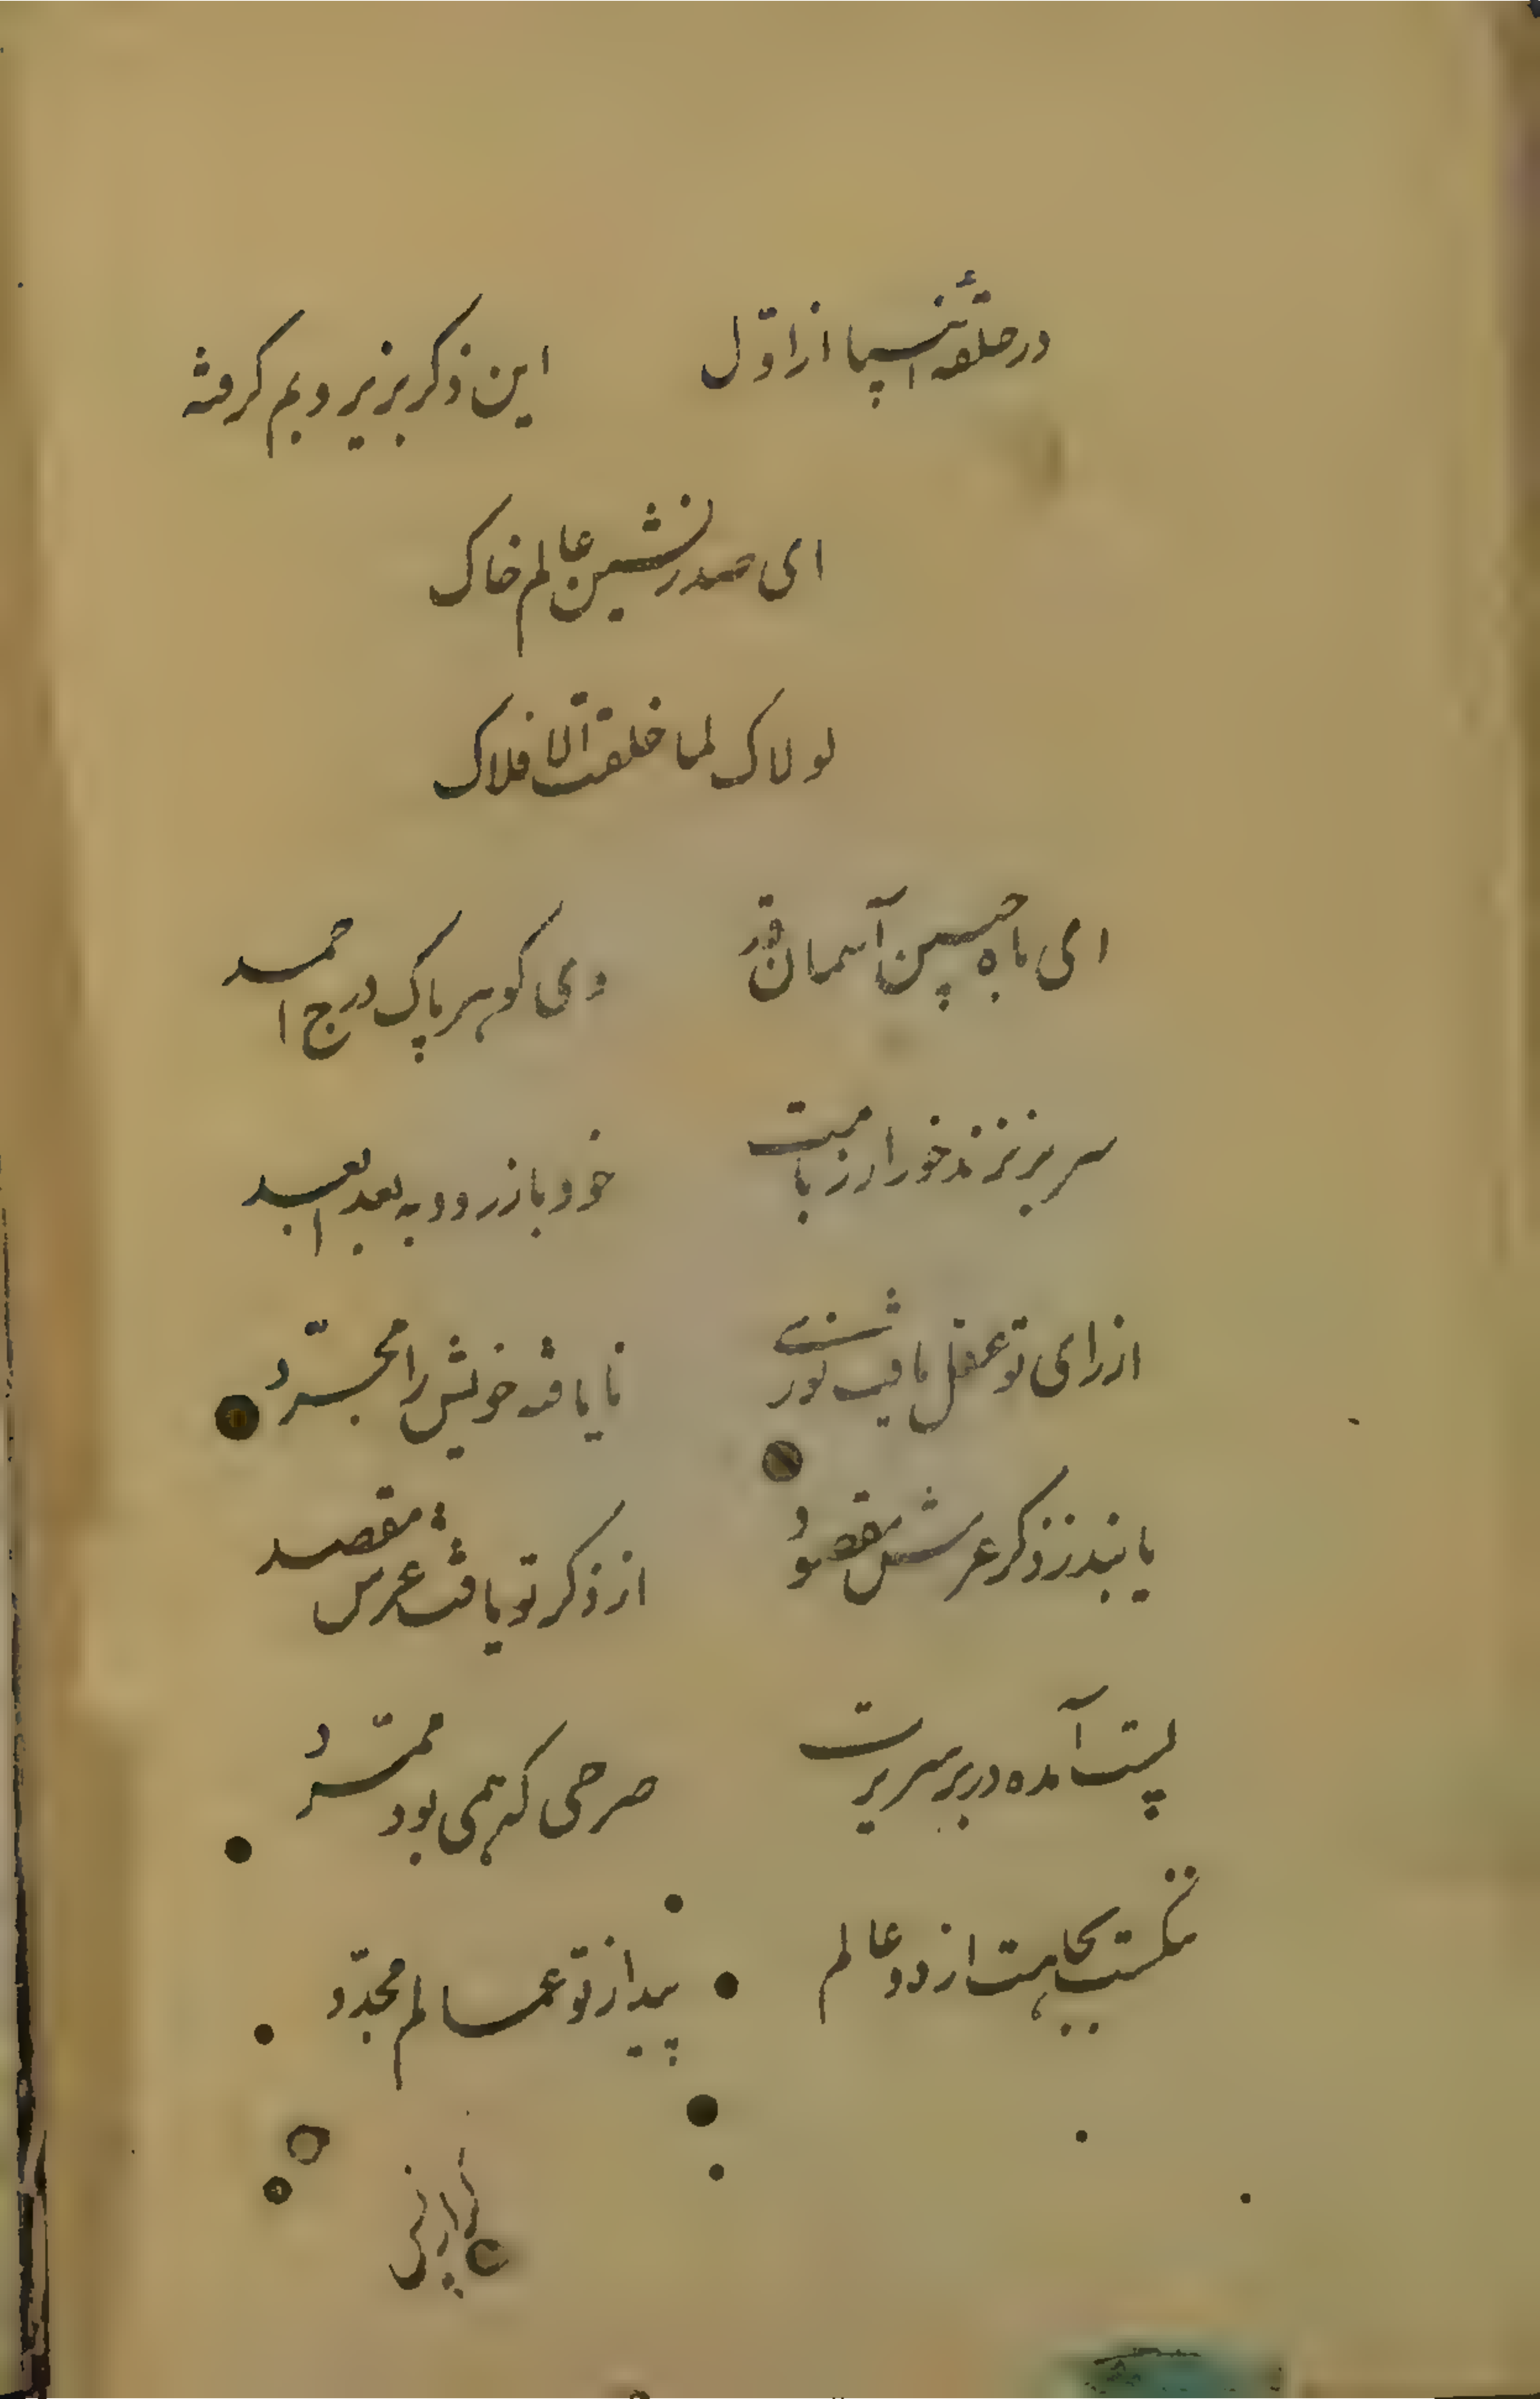 در حلقهٔ انبیا از اوّل این ذکر بزیر و بم گرفته
ای صدر نشین عالم خاک
لولاک لما خلقت الافلاک
ای ماه جبین آسمان قدر وی گوهر پاک درج احمد
سر بر نزند خور از خود باز رود به بعد ابعد
از رای تو عقل یافت نوری نایافته خویش را مجرّد
یابند ز ذکر عرش مقصود از ذکر تو یافت عرش مقصد
پست آمده در بر سریرت صرحی که همی بود ممرّد
بگاهت از دو عالم پیدا ز تو عالم مجدّد